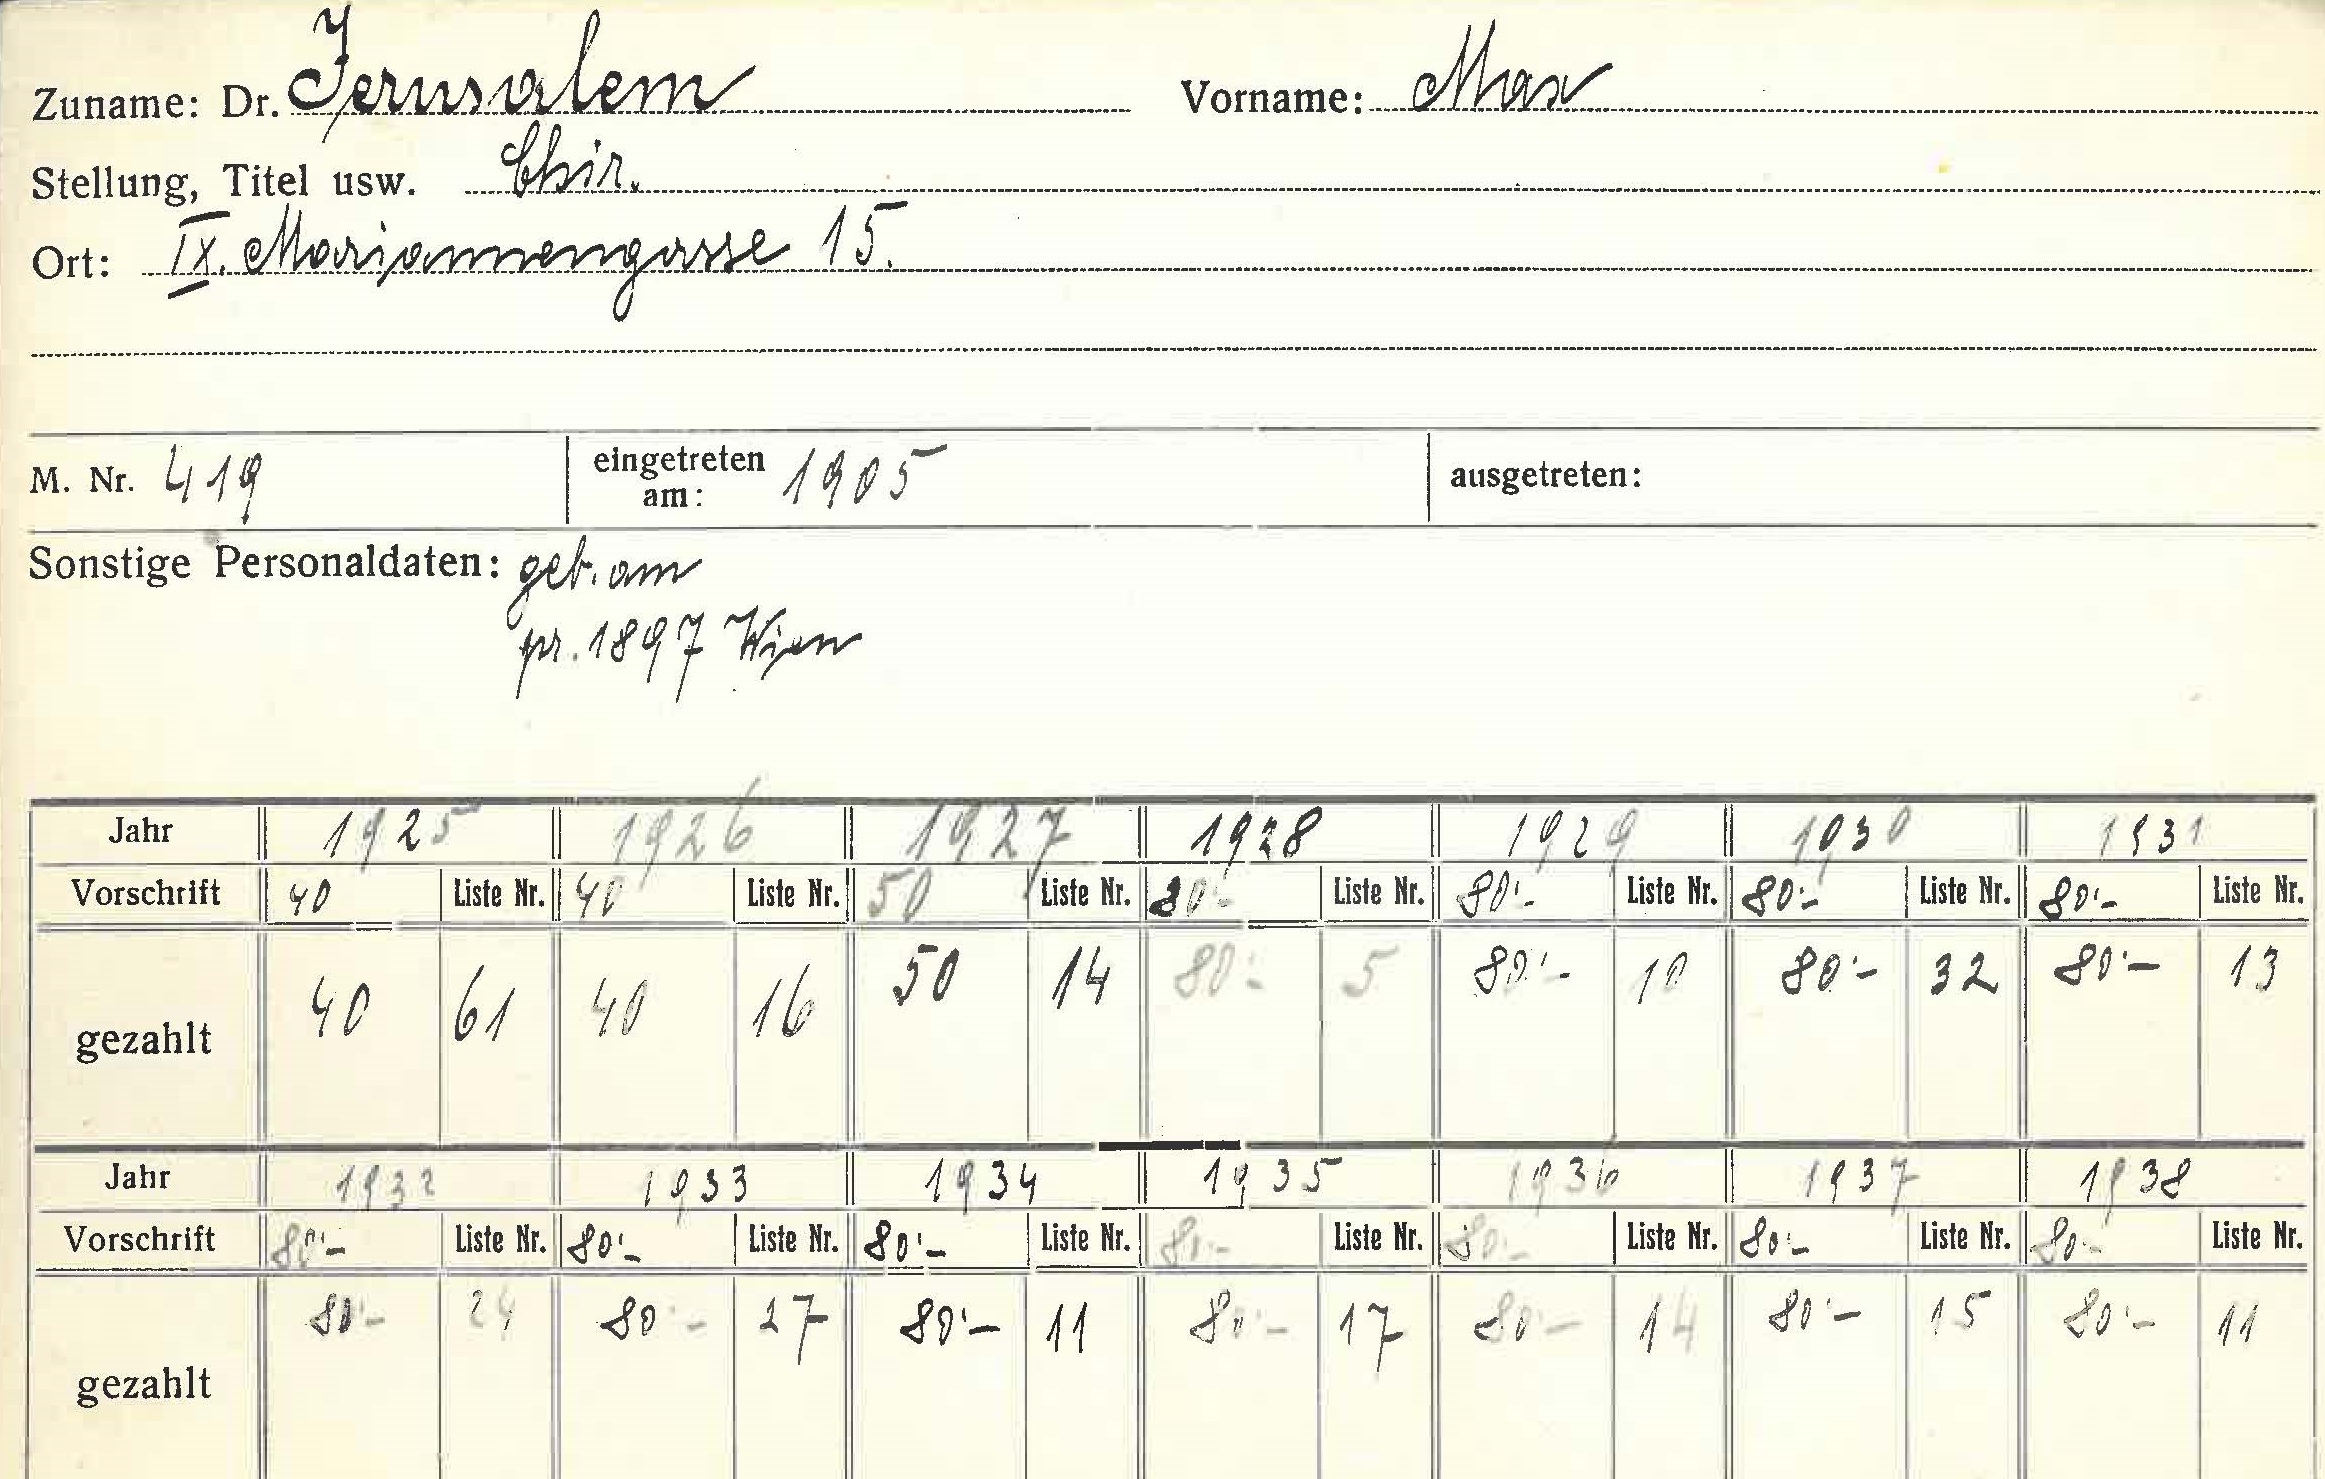 Zuname: Dr. Jerusalem Vorname: Max
Stellung, Titel usw. Chir.
Ort: IX. Mariannengasse 15.
M. Nr. 419 eingetreten am: 1905 ausgetreten:
Sonstige Personaldaten: geb. am
pr. 1897 Wien
Jahr 1925 1926 1927 1928 1929 1930 1931
Vorschrift 40 Liste Nr. 40 Liste Nr. 50 Liste Nr. 80.- Liste Nr. 80.- Liste Nr. 80.- Liste Nr. 80.- Liste Nr.
gezahlt 40 61 40 16 50 14 80.- 5 80.- 10 80.- 32 80.- 13
Jahr 1932 1933 1934 1935 1936 1937 1938
Vorschrift 80.- Liste Nr. 80.- Liste Nr. 80.- Liste Nr. 80.- Liste Nr. 80.- Liste Nr. 80.- Liste Nr. 80.- Liste Nr.
gezahlt 80.- 24 80.- 27 80.- 11 80.- 17 80.- 14 80.- 15 80.- 11